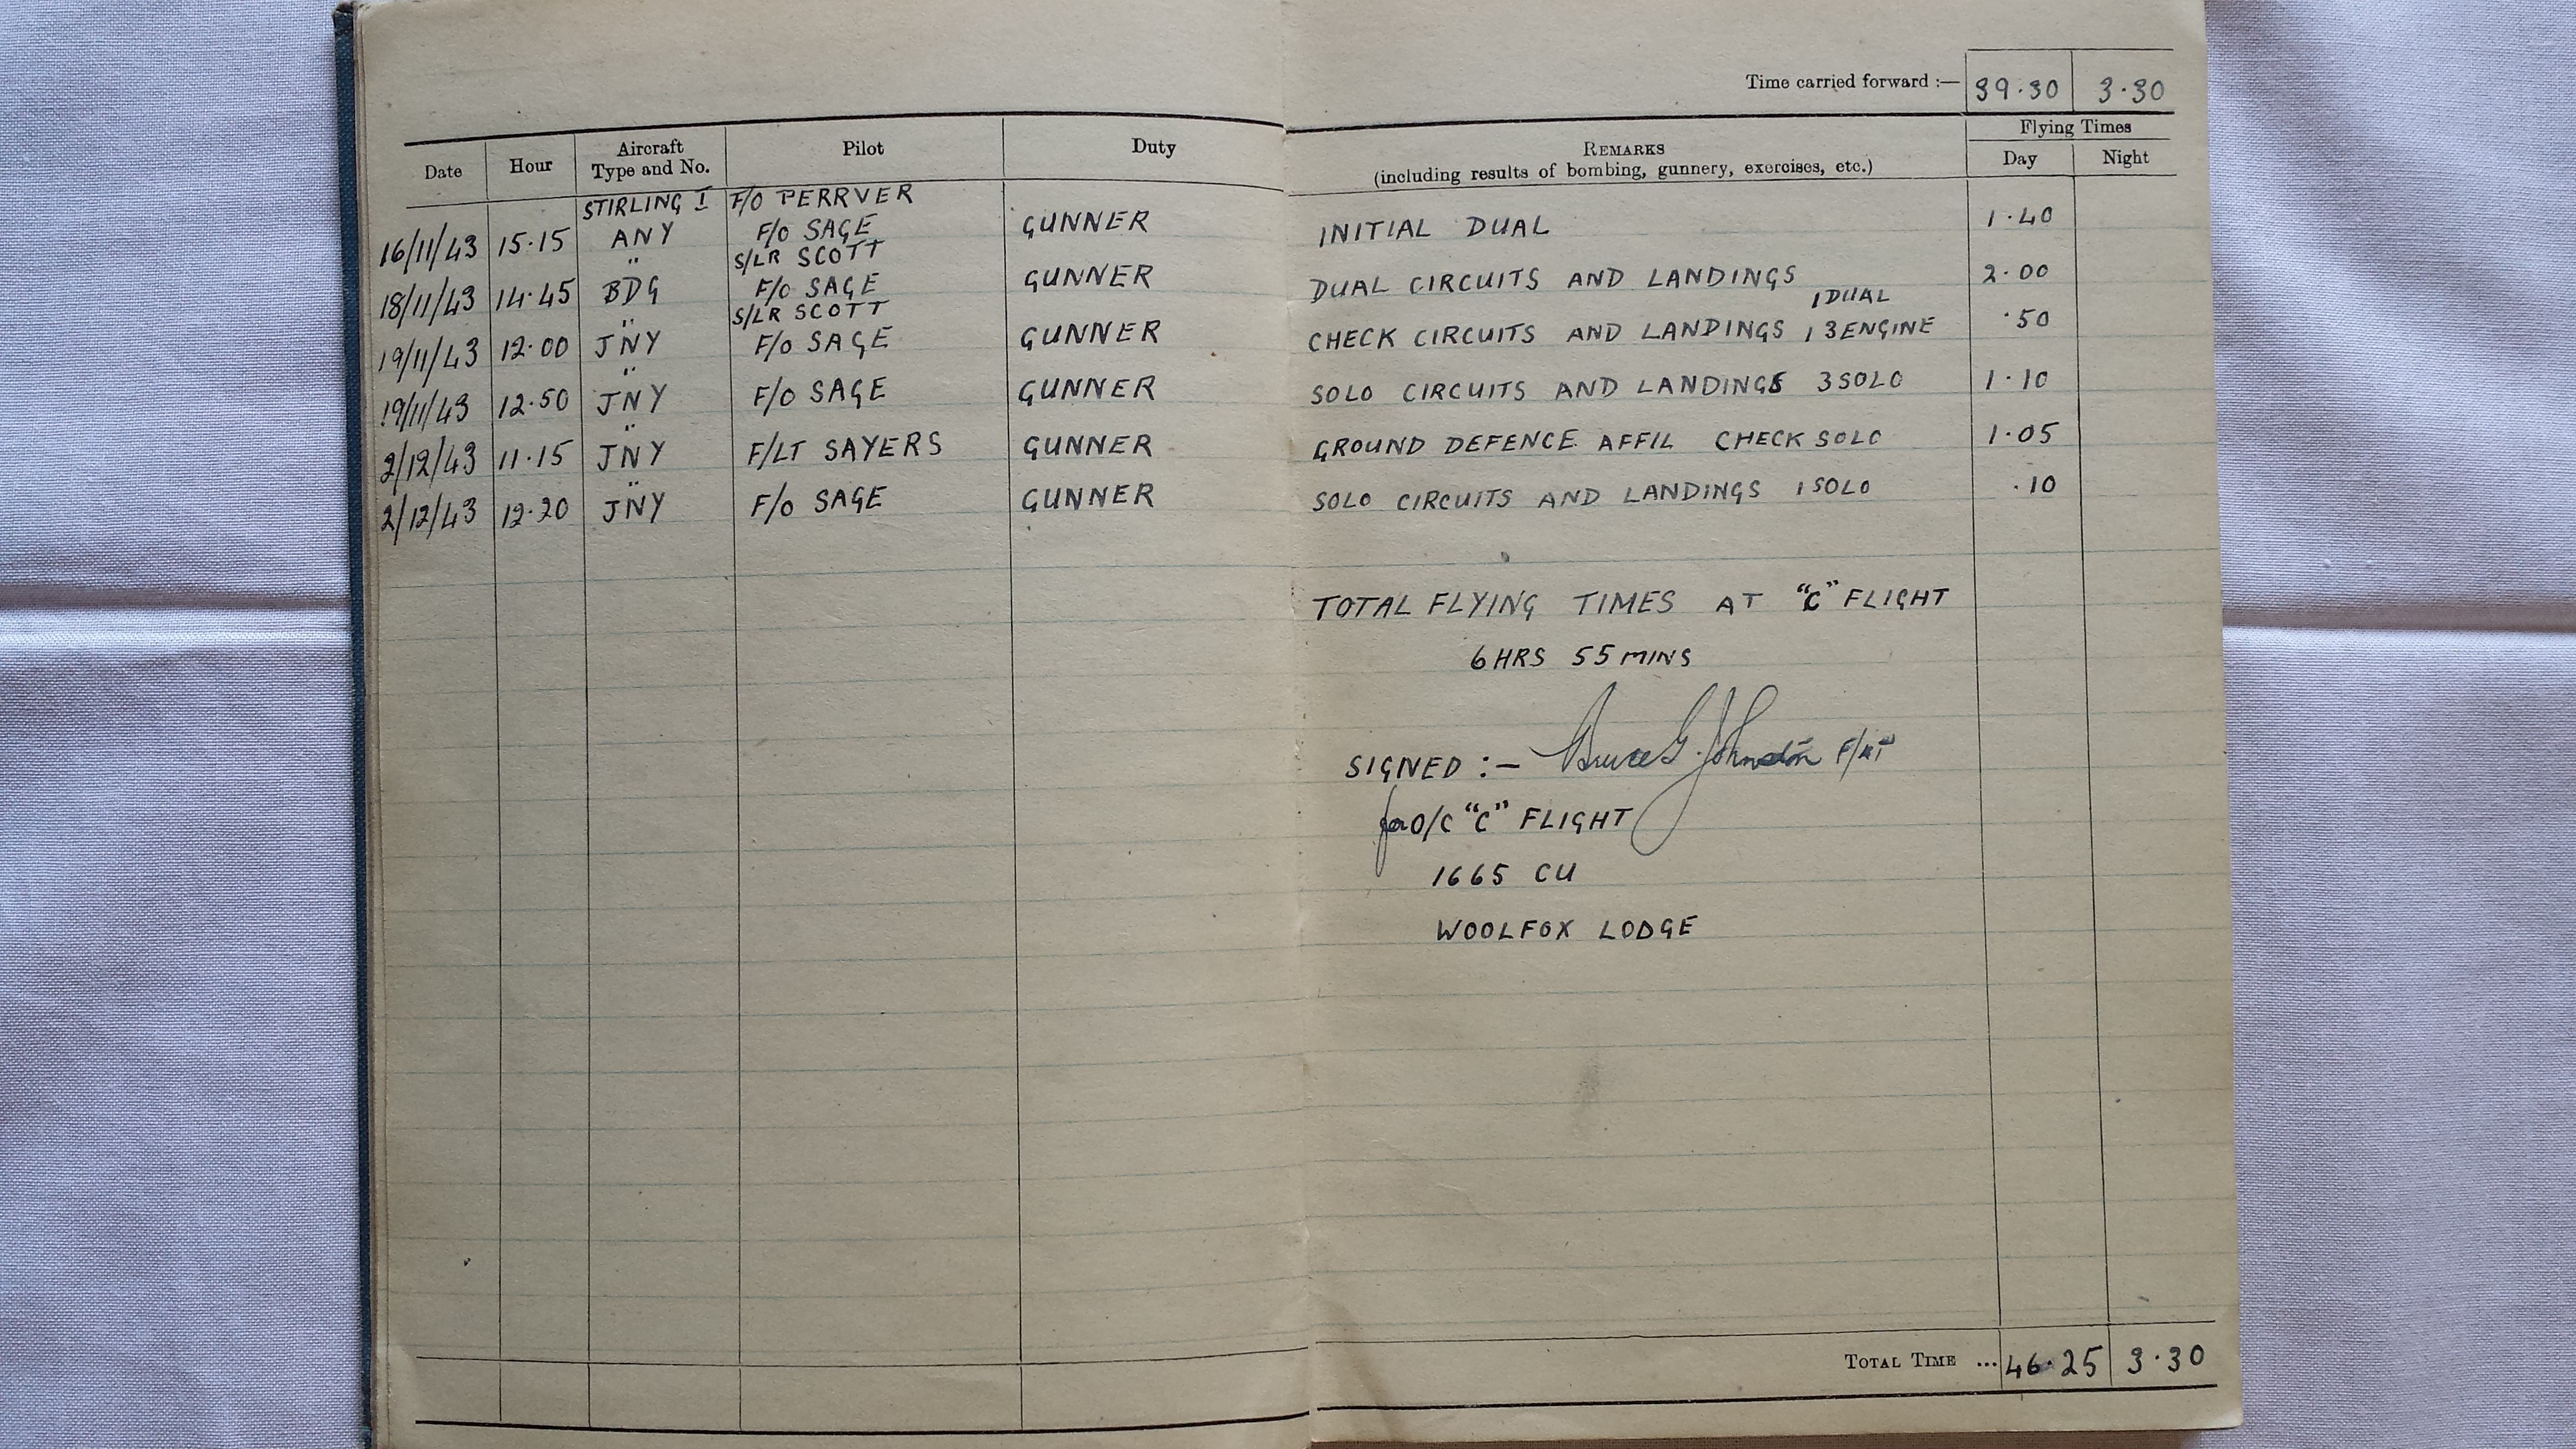 Time carried forward :— 39.30 3.30
Date Hour Aircraft Type and No. Pilot Duty REMARKS (including results of bombing, gunnery, exercises, etc.) Flying Times Day Night
STIRLING I F/O PERRVER
16/11/43 15.15 ANY F/O SAGE GUNNER INITIAL DUAL 1.40
" S/LR SCOTT
18/11/43 14.45 BDG F/O SAGE GUNNER DUAL CIRCUITS AND LANDINGS 2.00
" S/LR SCOTT 1 DUAL
19/11/43 12.00 JNY F/O SAGE GUNNER CHECK CIRCUITS AND LANDINGS 1 3 ENGINE .50
"
19/11/43 12.50 JNY F/O SAGE GUNNER SOLO CIRCUITS AND LANDINGS 3 SOLO 1.10
"
2/12/43 11.15 JNY F/LT SAYERS GUNNER GROUND DEFENCE AFFIL CHECK SOLO 1.05
"
2/12/43 12.20 JNY F/O SAGE GUNNER SOLO CIRCUITS AND LANDINGS 1 SOLO .10
TOTAL FLYING TIMES AT "C" FLIGHT
6 HRS 55 MINS
SIGNED :— Bruce G. Johnston F/Lt
for O/C "C" FLIGHT
1665 CU
WOOLFOX LODGE
TOTAL TIME ... 46.25 3.30